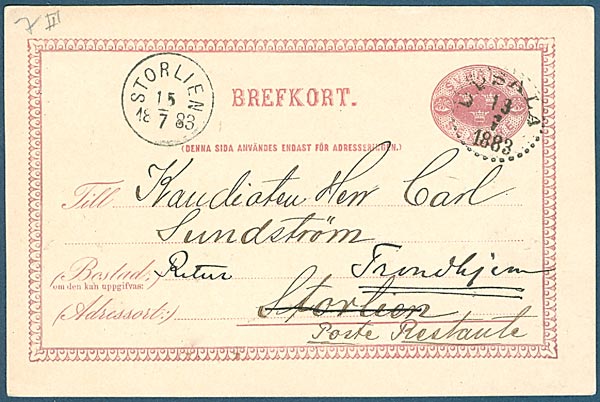 7 III
STORLIEN
15
18 7 83
BREFKORT.
SVERIGE
UPSALA
13
7
1883
(DENNA SIDA ANVÄNDES ENDAST FÖR ADRESSERINGEN.)
Till Kandidaten Herr Carl
Sundström
(Bostad: Retur Trondhjem
om den kan uppgifvas:)
(Adressort:) Storlien
Poste Restante